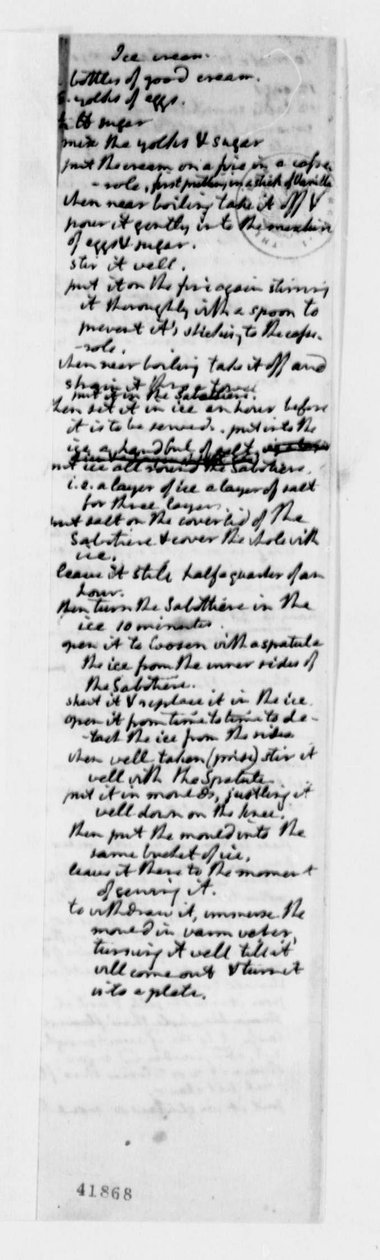 Ice cream.
bottles of good cream.
yolks of eggs.
sugar
mix the yolks & sugar
put the cream on a fire in a casse-
-role, first putting in a stick of Vanilla.
when near boiling take it off &
pour it gently into the mixture
of eggs & sugar.
stir it well.
put it on the fire again stirring
it thoroughly with a spoon to
prevent it's sticking to the casse-
-role.
when near boiling take it off and
strain it thro' a towel.
put it in the Sabottiere.
then set it in ice an hour before
it is to be served. put into the
ice a handful of salt.
put ice all around the Sabotiere.
i.e. a layer of ice a layer of salt
for three layers.
put salt on the coverlid of the
Sabotiere & cover the whole with
ice.
leave it still half a quarter of an
hour.
then turn the Sabottiere in the
ice 10 minutes.
open it to loosen with a spatula
the ice from the inner sides of
the Sabotiere.
shut it & replace it in the ice.
open it from time to time to de-
-tach the ice from the sides
when well taken (prise) stir it
well with the Spatula.
put it in moulds, justling it
well down on the knee.
then put the mould into the
same bucket of ice.
leave it there to the moment
of serving it.
to withdraw it, immerse the
mould in warm water,
turning it well till it
will come out & turn it
into a plate.
41868